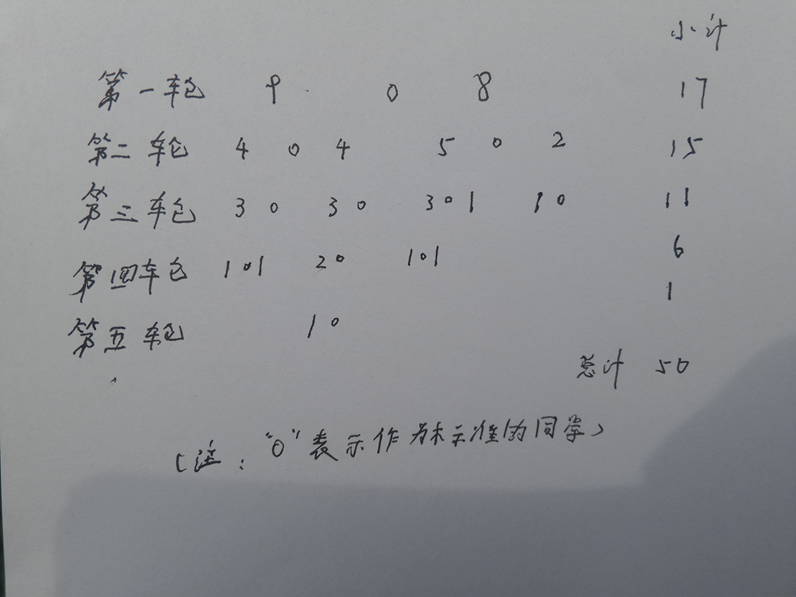 小计
第一轮 9 0 8 17
第二轮 4 0 4 5 0 2 15
第三轮 3 0 3 0 3 0 1 1 0 11
第四轮 1 0 1 2 0 1 0 1 6
第五轮 1 0 1
总计 50
(注："0"表示作为标准的同学)